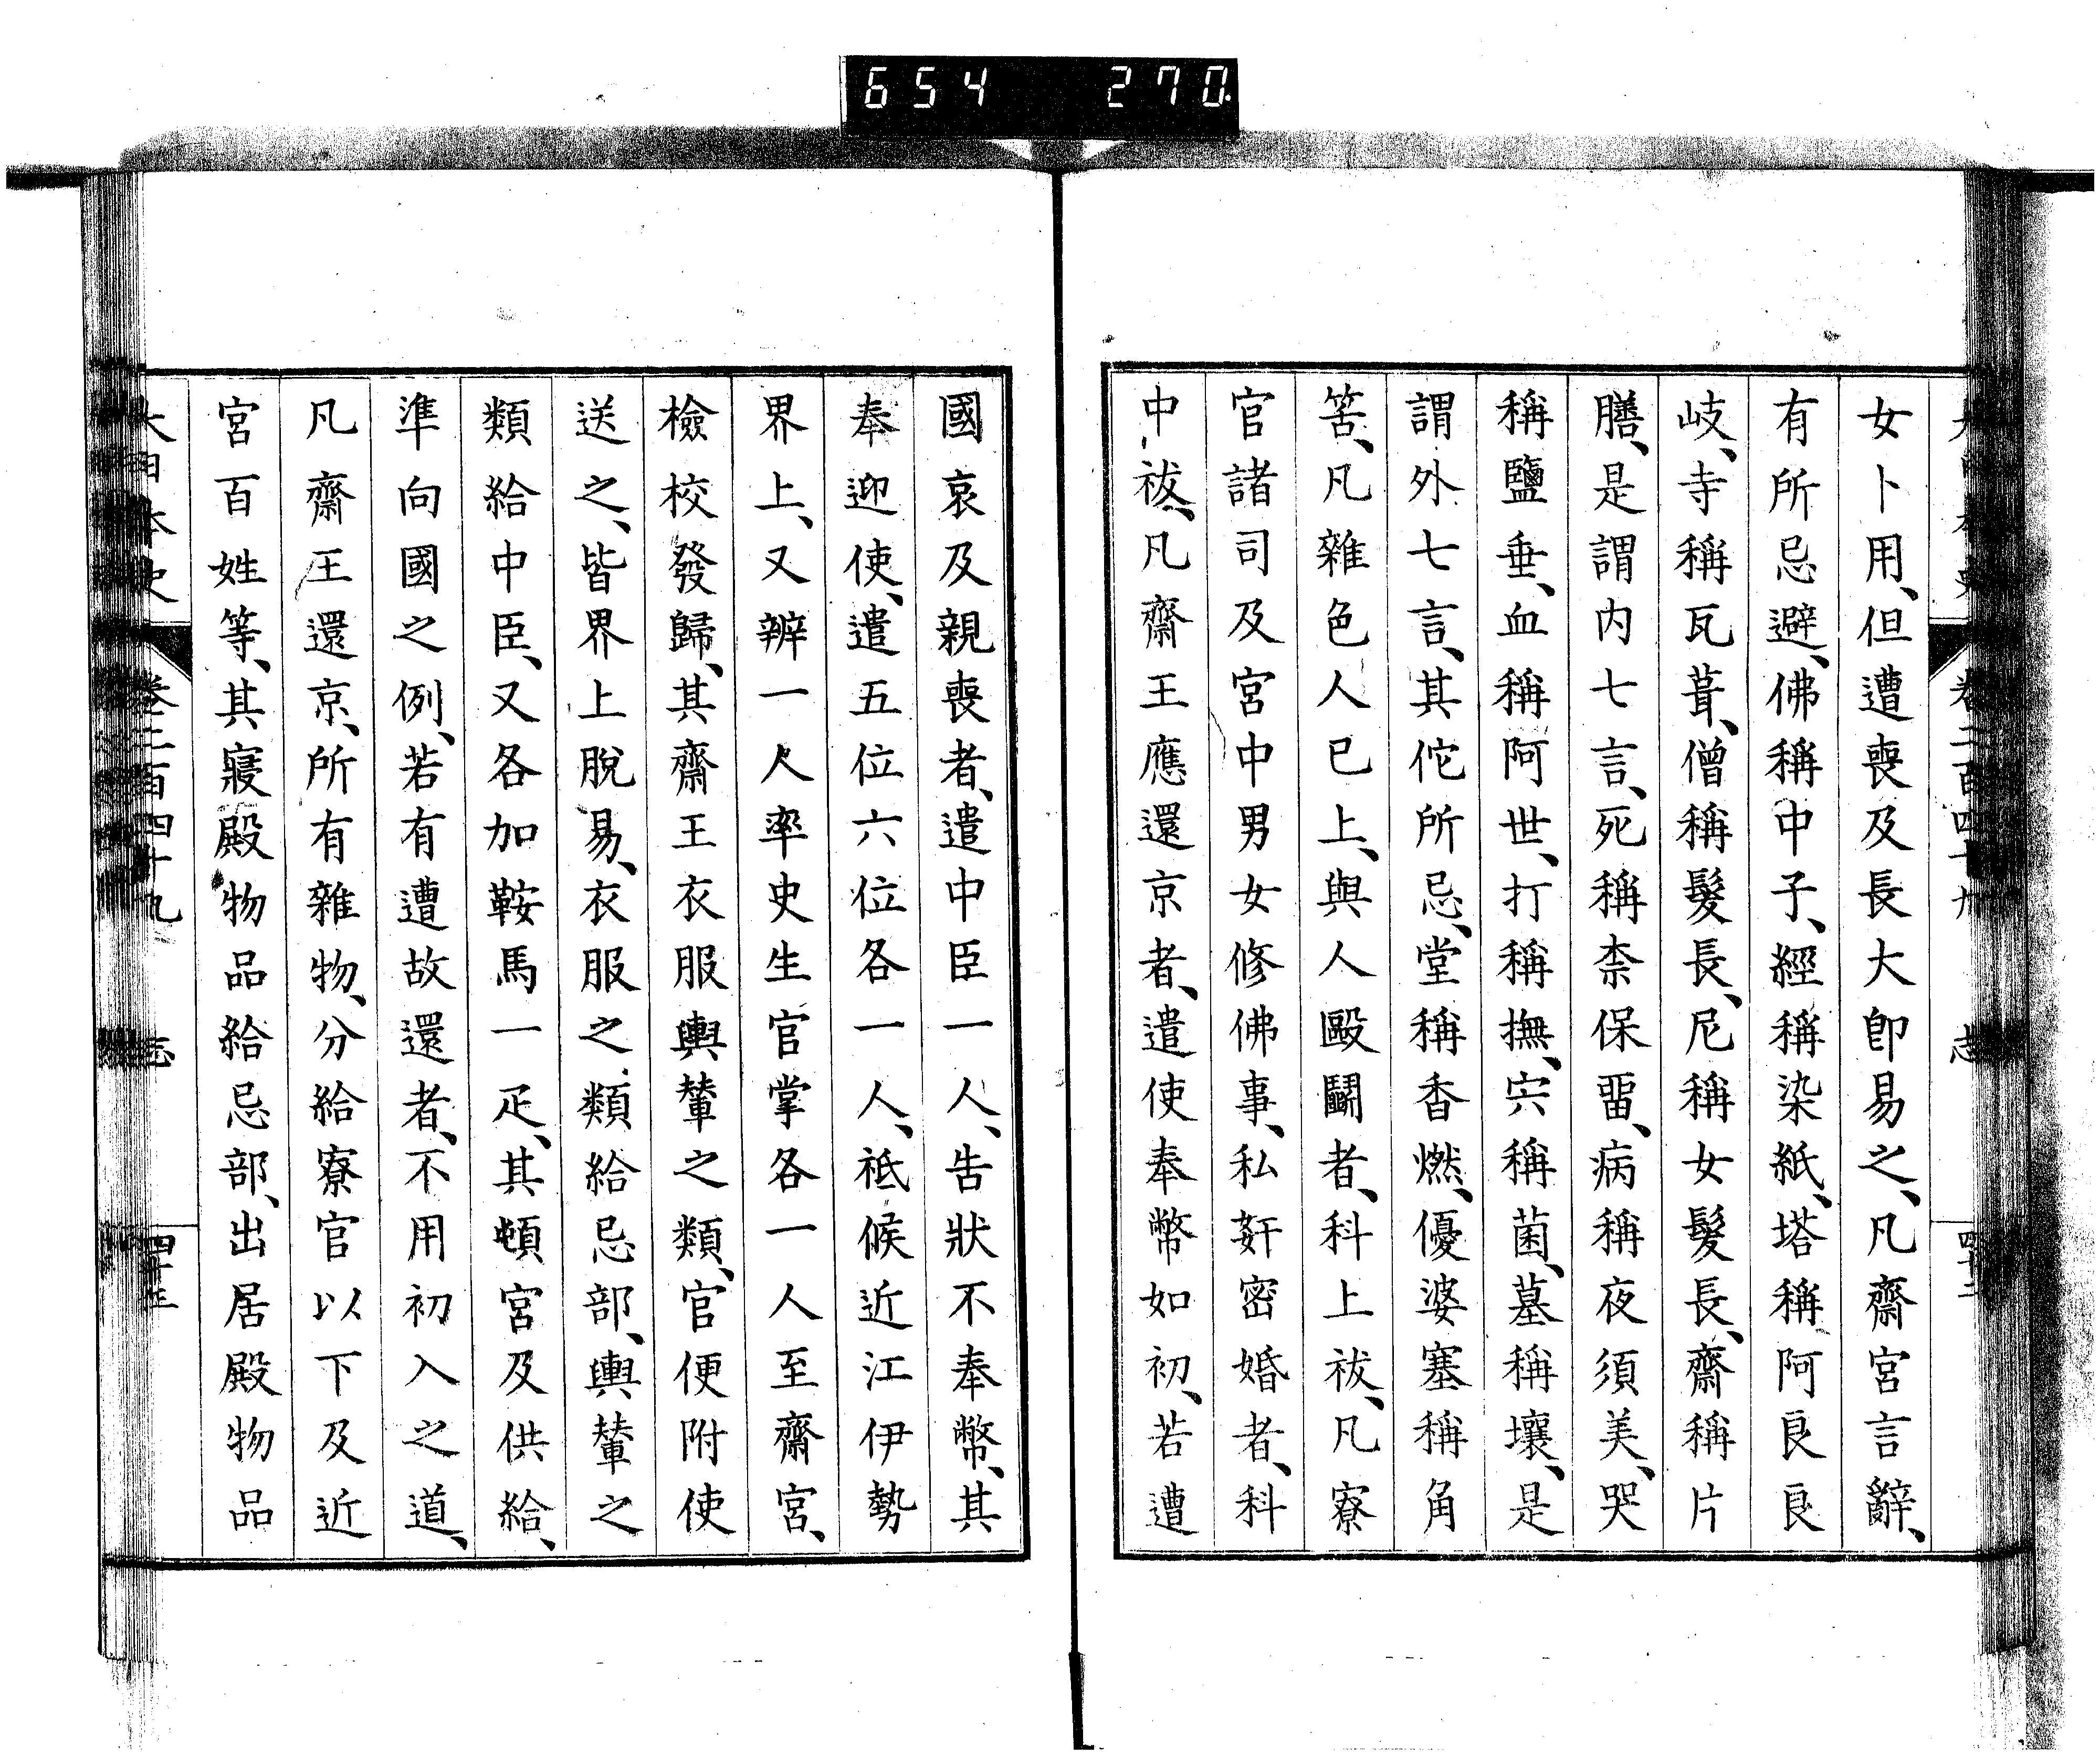 654 270
女卜用、但遭喪及長大卽易之、凡齋宮言辭、
有所忌避、佛稱中子、經稱染紙、塔稱阿良良
岐、寺稱瓦葺、僧稱髮長、尼稱女髮長、齋稱片
膳、是謂内七言、死稱柰保畱、病稱夜須美、哭
稱鹽垂、血稱阿世、打稱撫、宍稱菌、墓稱壤、是
謂外七言、其佗所忌、堂稱香燃、優婆塞稱角
筈、凡雜色人已上、與人毆鬭者、科上祓、凡寮
官諸司及宮中男女修佛事、私姧密婚者、科
中祓、凡齋王應還京者、遣使奉幣如初、若遭
國哀及親喪者、遣中臣一人、告狀不奉幣、其
奉迎使、遣五位六位各一人、祗候近江伊勢
界上、又辨一人率史生官掌各一人至齋宮、
檢校發歸、其齋王衣服輿輦之類、官便附使
送之、皆界上脫易、衣服之類給忌部、輿輦之
類給中臣、又各加鞍馬一疋、其頓宮及供給、
準向國之例、若有遭故還者、不用初入之道、
凡齋王還京、所有雜物、分給寮官以下及近
宮百姓等、其寢殿物品給忌部、出居殿物品
大日本史 卷二百四十九 志 四十三